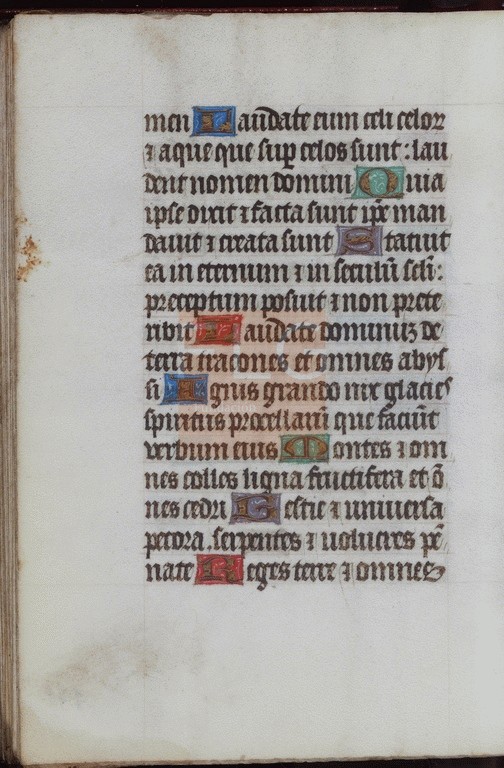 men Laudate eum celi celoꝝ
⁊ aque que suꝑ celos sunt : lau
dent nomen domini Quia
ipse dixit ⁊ facta sunt ip̄e man
dauit ⁊ creata sunt Statuit
ea in eternum ⁊ in seculū scl̄i :
preceptum posuit ⁊ non prete
ribit Laudate dominuꝫ de
terra dracones et omnes abys
si Ignis grando nix glacies
spiritus procellarū que faciūt
verbum eius Montes ⁊ om
nes colles ligna fructifera et ō
nes cedri Bestie ⁊ uniuersa
pecora serpentes ⁊ uolucres pē
nate Reges terre ⁊ omnes